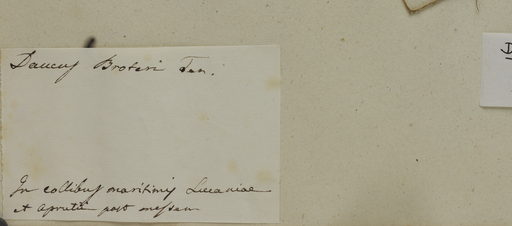 Daucus Broteri Ten.
In collibus maritimis Lucaniae
et Aprutii post messem
D